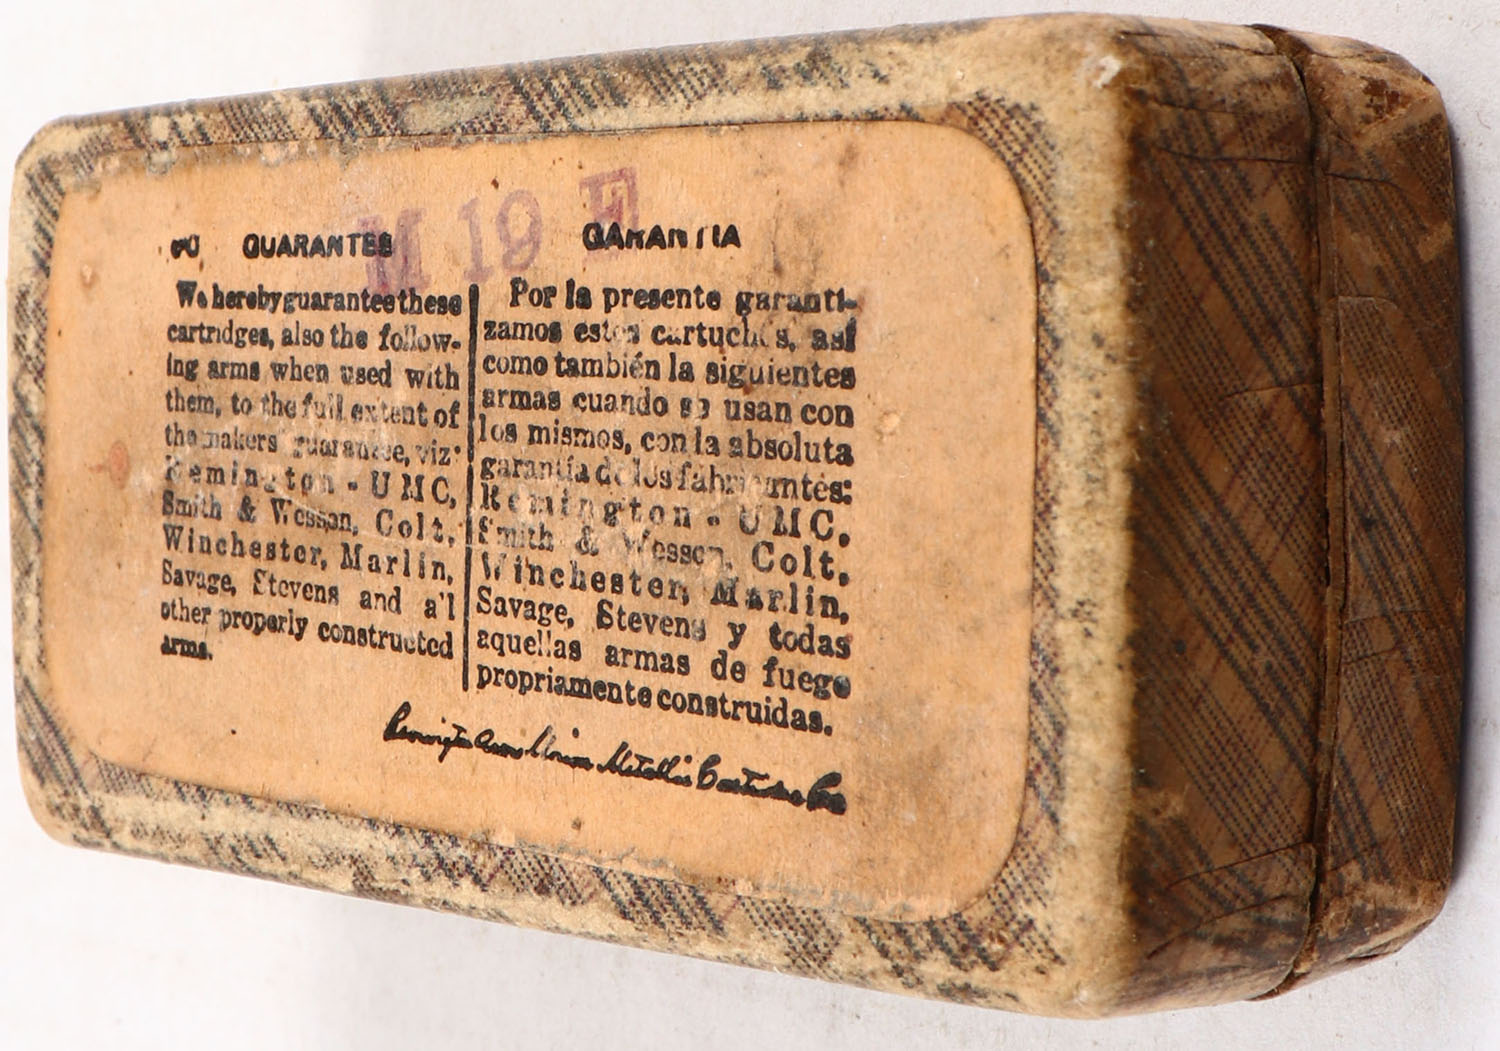 M 19 E
GUARANTEE
We hereby guarantee these
cartridges, also the follow-
ing arms when used with
them, to the full extent of
the makers' guarantee, viz:
Remington - UMC,
Smith & Wesson, Colt,
Winchester, Marlin,
Savage, Stevens and all
other properly constructed
arms.
GARANTIA
Por la presente garanti-
zamos estos cartuchos, así
como también la siguientes
armas cuando se usan con
los mismos, con la absoluta
garantía de los fabricantes:
Remington - UMC,
Smith & Wesson, Colt,
Winchester, Marlin,
Savage, Stevens y todas
aquellas armas de fuego
propriamente construidas.
Remington Arms Union Metallic Cartridge Co